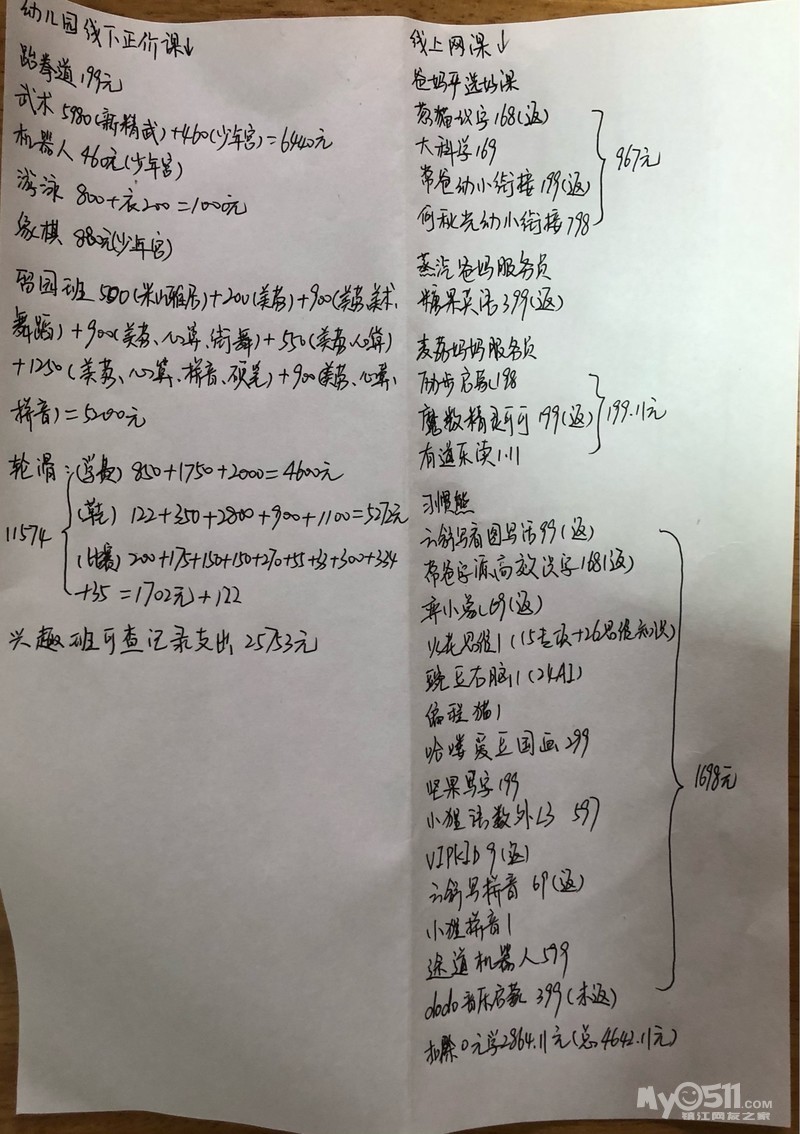 幼儿园线下正价课↓
跆拳道199元
武术5980(新精武)+460(少年宫)=6440元
机器人460元(少年宫)
游泳 800+衣200=1000元
象棋 880元(少年宫)
留园班 500(米雅)+200(美葛)+900(美葛美术、
舞蹈)+900(美葛、心算、街舞)+550(美葛心算)
+1250(美葛、心算、拼音、硬笔)+900(美葛、心算、
拼音)=5200元
轮滑:(学费) 850+1750+2000=4600元
(鞋) 122+350+2800+900+1100=5272元
11574
(比赛) 200+175+150+150+270+55+33+300+334
+35=1702元+122
兴趣班可查记录支出25753元
线上网课↓
爸妈平选妈课
猫识字168(返)
大科学169
常爸幼小衔接199(返)
何秋光幼小衔接798
967元
蒸汽爸妈服务员
糖果英语399(返)
麦葛妈妈服务员
励步启蒙198
魔数精灵可可199(返)
有道乐读1.11
199.11元
习惯熊
云舒写看图写话99(返)
常爸字源高效识字168(返)
弈小象69(返)
火花思维1(15专项+26思维知识)
豌豆右脑11(24AI)
编程猫1
哈喽爱豆国画299
坚果写字199
小狸语数外L3 597
VIPKID 9(返)
云舒写拼音 69(返)
小狸拼音1
途道机器人599
dodo音乐启蒙 399(未返)
1698元
扣除0元学2864.11元(总4642.11元)
My0511.COM
镇江网友之家